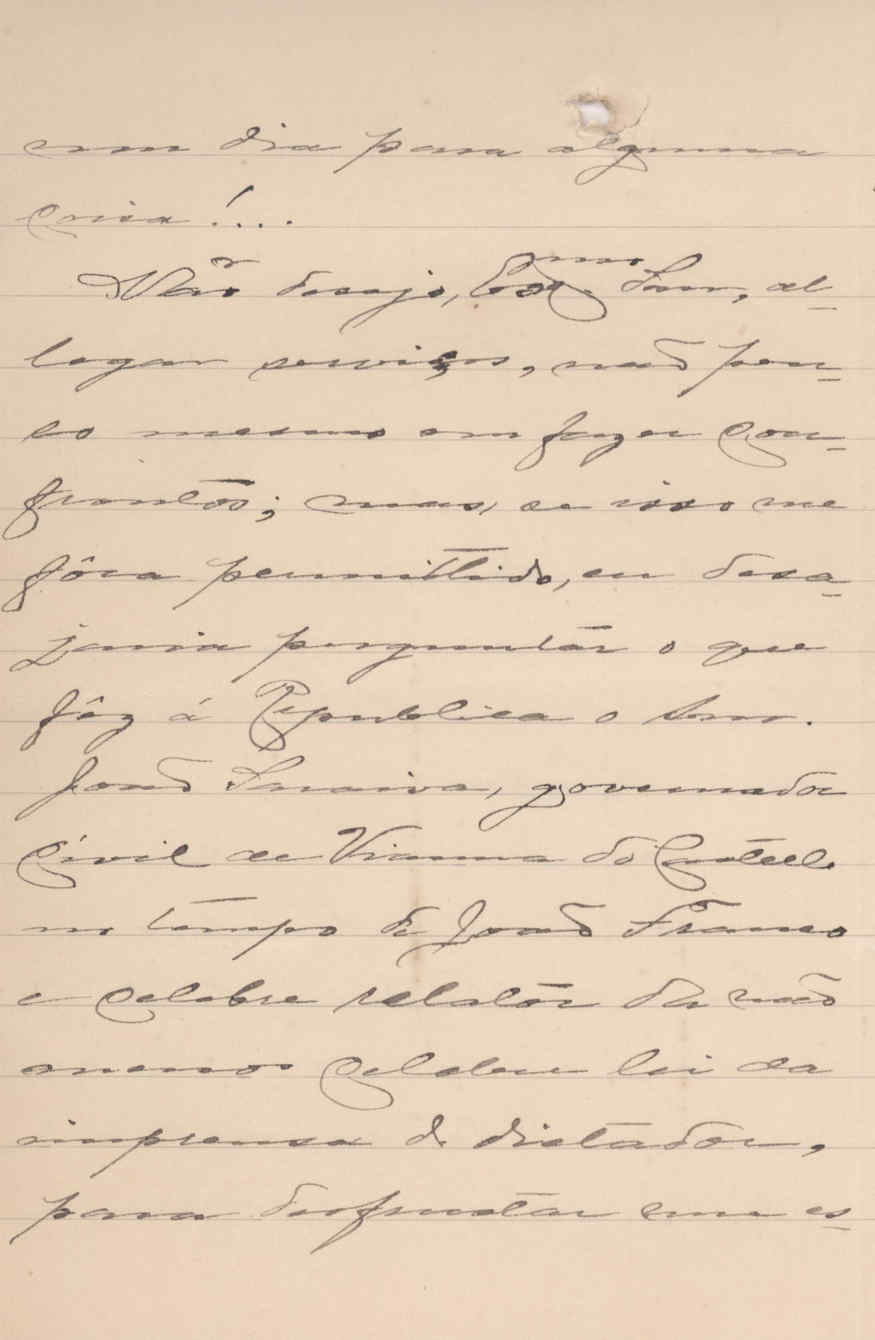 um dia para alguma
coisa!...
Não desejo, Exmo. Snr., al-
legar serviços, não pen-
so mesmo em fazer con-
frontos; mas, se isso me
fôra permittido, eu dese-
jaria perguntar o que
fêz á Republica o snr.
João Saraiva, governador
Civil de Vianna do Castello
no tempo de João Franco
e celebre relatôr da não
menos celebre lei da
imprensa do dictador,
para desfructar um es-